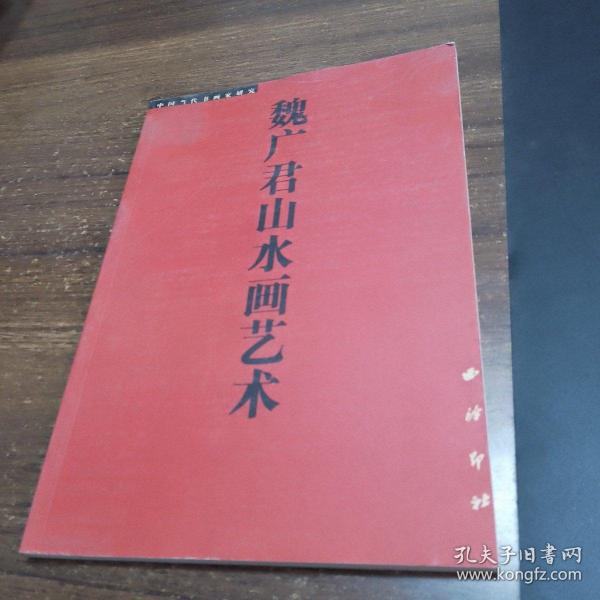 中国当代书画家研究
魏广君山水画艺术
西泠印社
孔夫子旧书网
www.kongfz.com